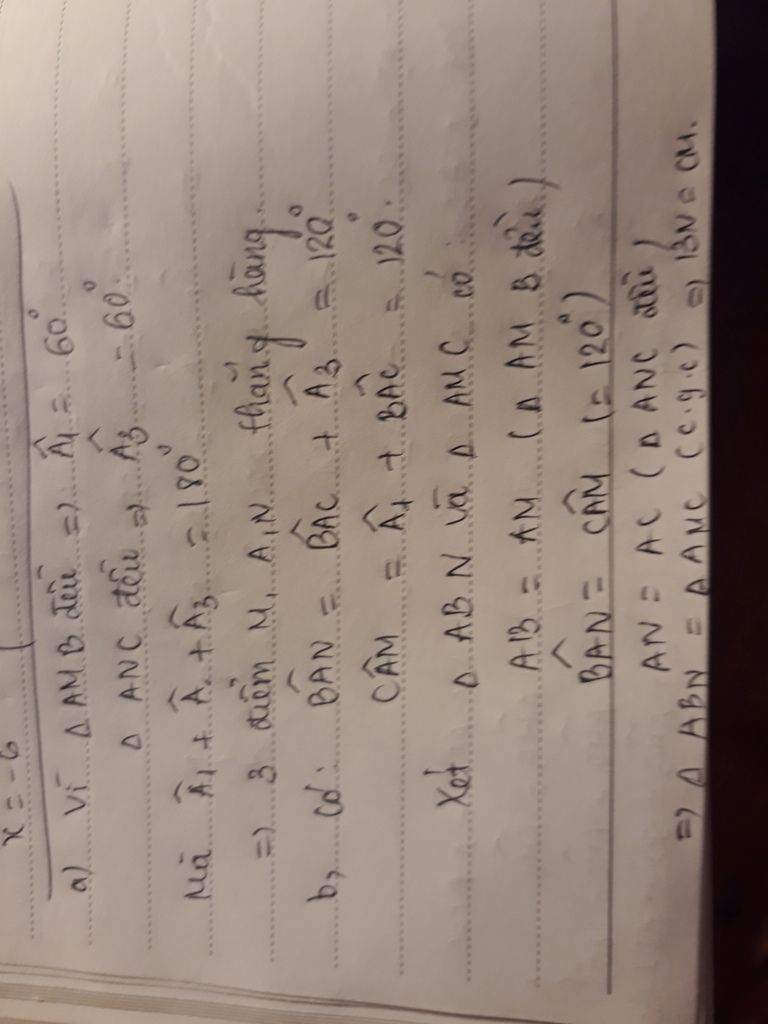 x = -6
a) Vì Δ AMB đều => Â1 = 60°
Δ ANC đều => Â3 = 60°
Mà Â1 + Â + Â3 = 180°
=> 3 điểm M, A, N thẳng hàng
b, có: BÂN = BÂC + Â3 = 120°
CÂM = Â1 + BÂC = 120°.
Xét Δ ABN và Δ AMC có:
AB = AM (Δ AMB đều)
BÂN = CÂM (= 120°)
AN = AC (Δ ANC đều)
=> Δ ABN = Δ AMC (c.g.c) => BN = CM.